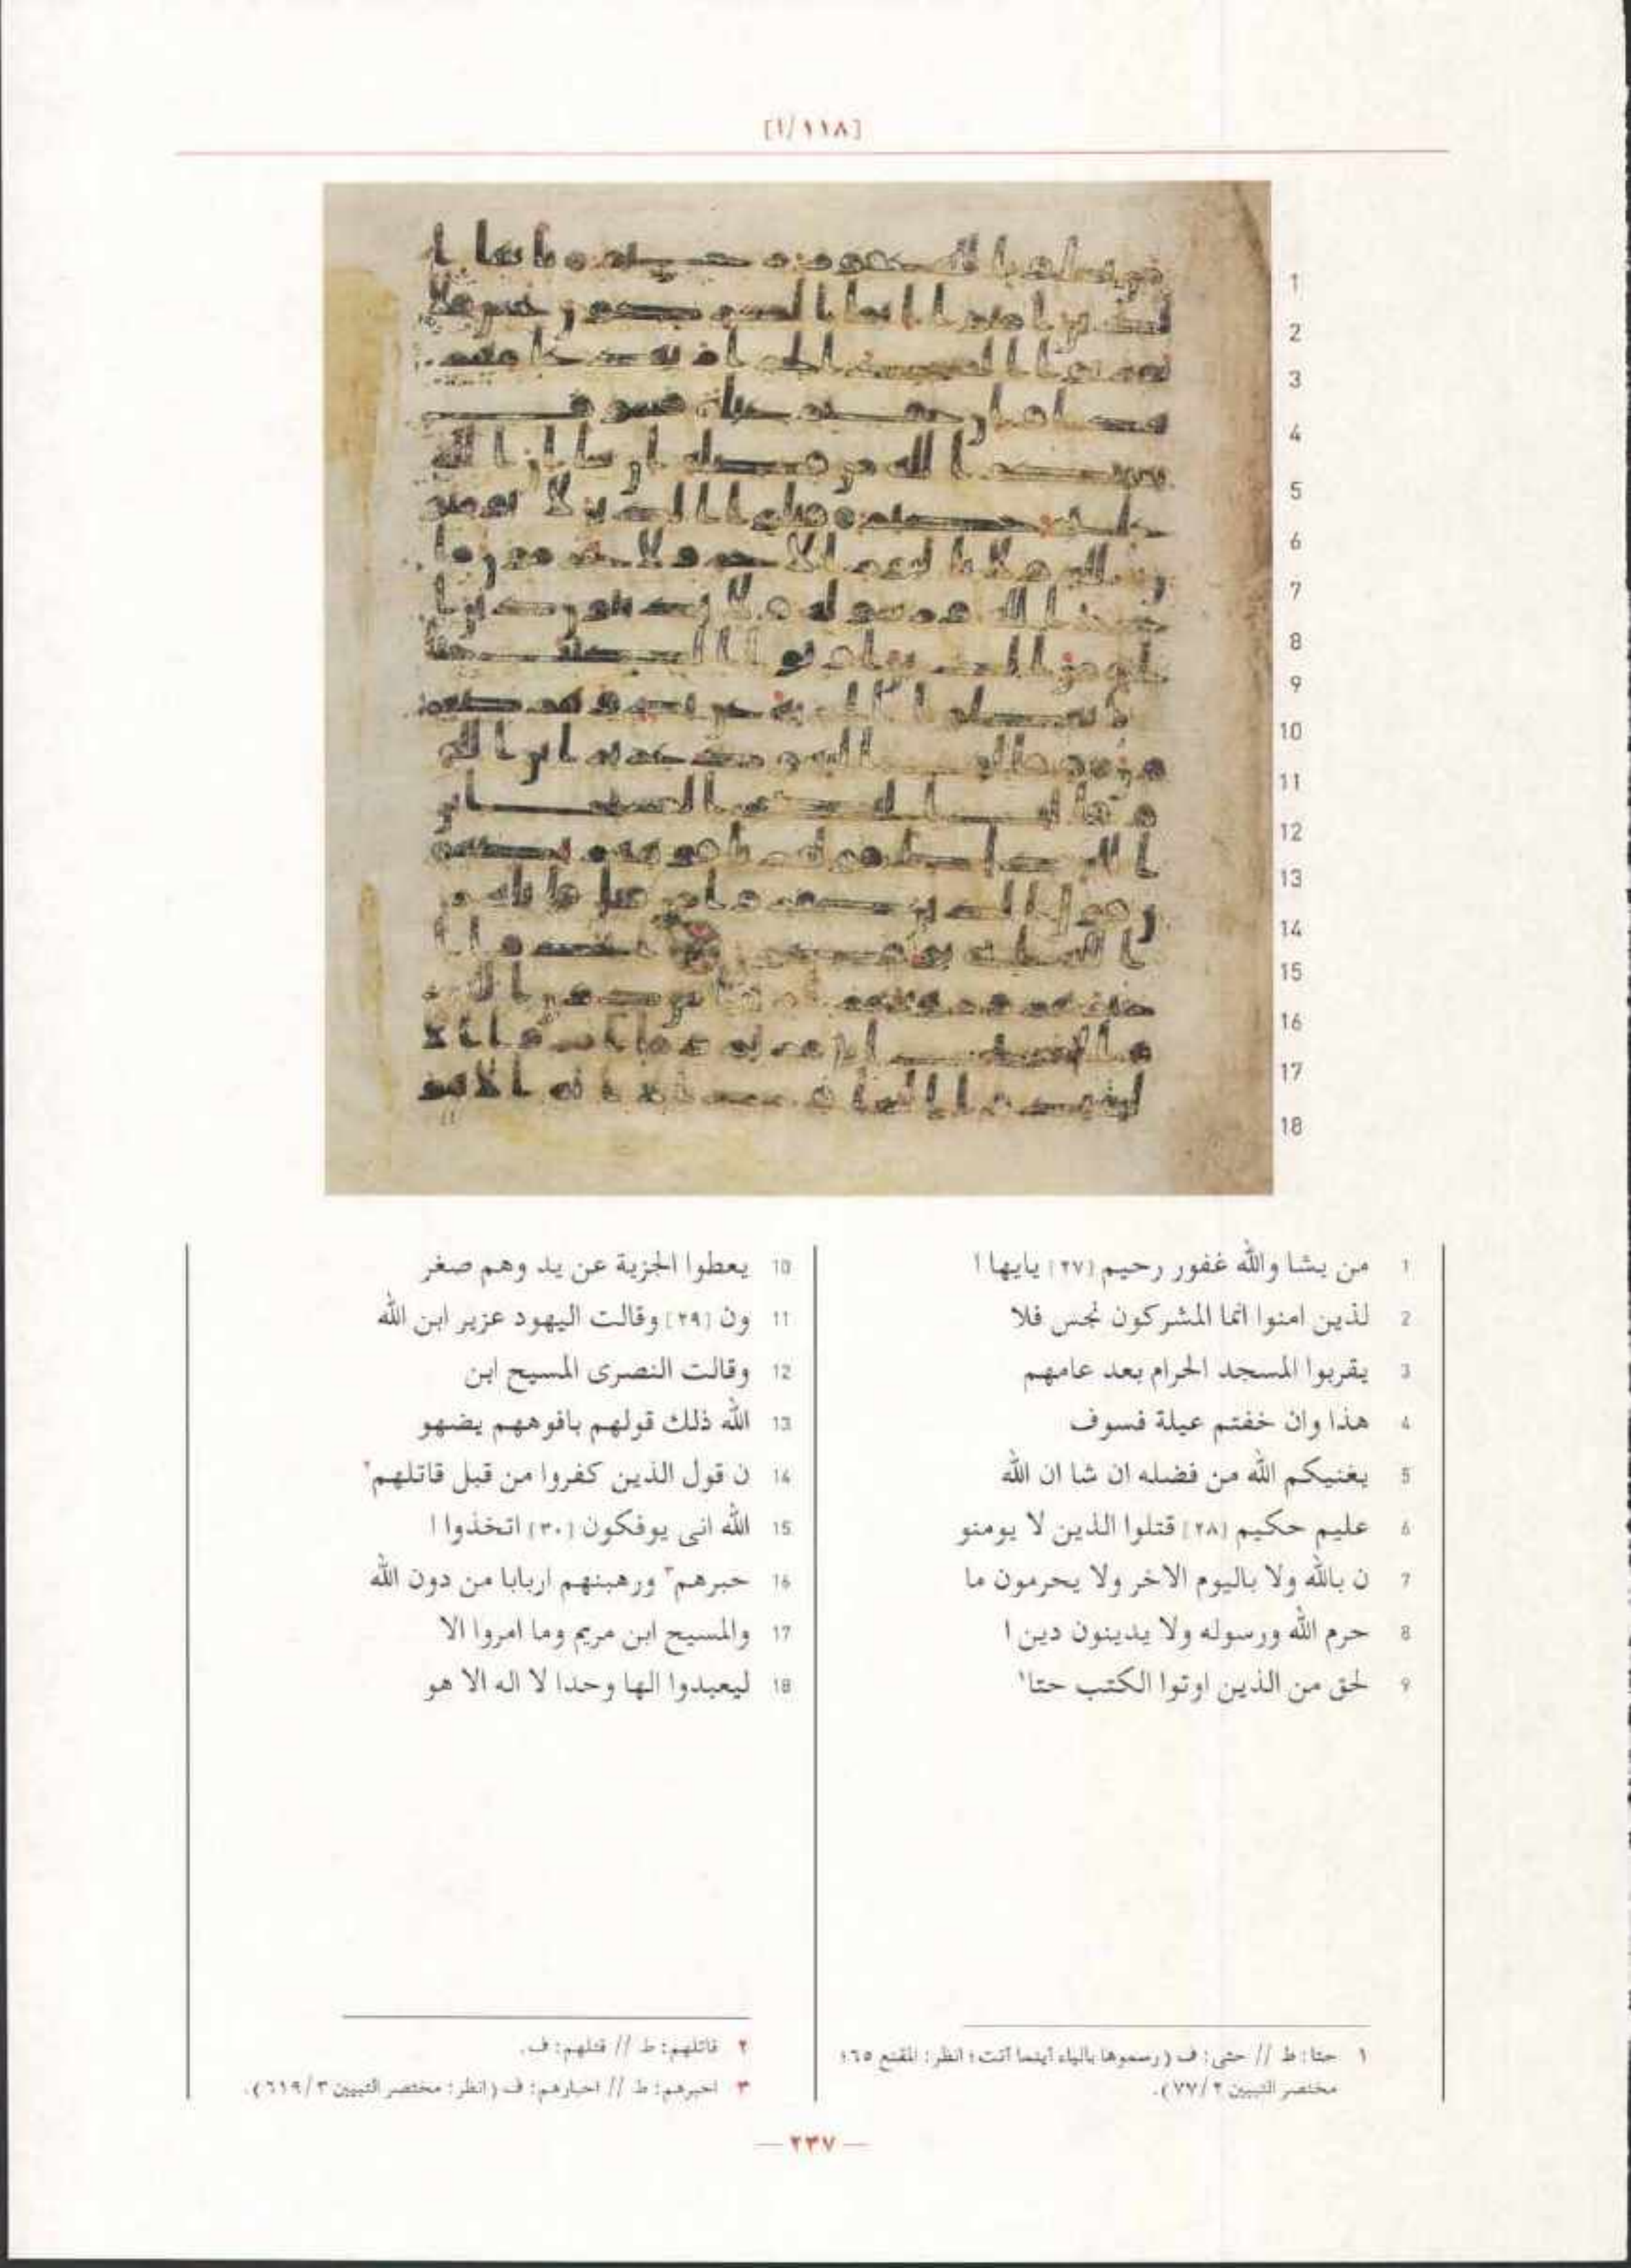 [١١٨/ا]
1
2
3
4
5
6
7
8
9
10
11
12
13
14
15
16
17
18
1 من يشا والله غفور رحيم [٢٧] يايها ا
2 لذين امنوا انما المشركون نجس فلا
3 يقربوا المسجد الحرام بعد عامهم
4 هذا وان خفتم عيلة فسوف
5 يغنيكم الله من فضله ان شا ان الله
6 عليم حكيم [٢٨] قتلوا الذين لا يومنو
7 ن بالله ولا باليوم الاخر ولا يحرمون ما
8 حرم الله ورسوله ولا يدينون دين ا
9 لحق من الذين اوتوا الكتب حتا١
10 يعطوا الجزية عن يد وهم صغر
11 ون [٢٩] وقالت اليهود عزير ابن الله
12 وقالت النصرى المسيح ابن
13 الله ذلك قولهم بافوههم يضهو
14 ن قول الذين كفروا من قبل قاتلهم٢
15 الله انى يوفكون [٣٠] اتخذوا ا
16 حبرهم٣ ورهبنهم اربابا من دون الله
17 والمسيح ابن مريم وما امروا الا
18 ليعبدوا الها وحدا لا اله الا هو
١ حتا: ط // حتى: ف (رسموها بالياء أينما أتت؛ انظر: المقنع ٦٥؛
مختصر التبيين ٢/ ٧٧).
٢ قاتلهم: ط // قتلهم: ف.
٣ احبرهم: ط // احبارهم: ف (انظر: مختصر التبيين ٣/ ٦١٩).
— ٢٣٧ —